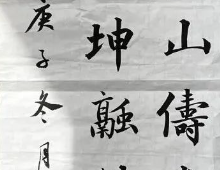 山儔
坤融
庚子冬月